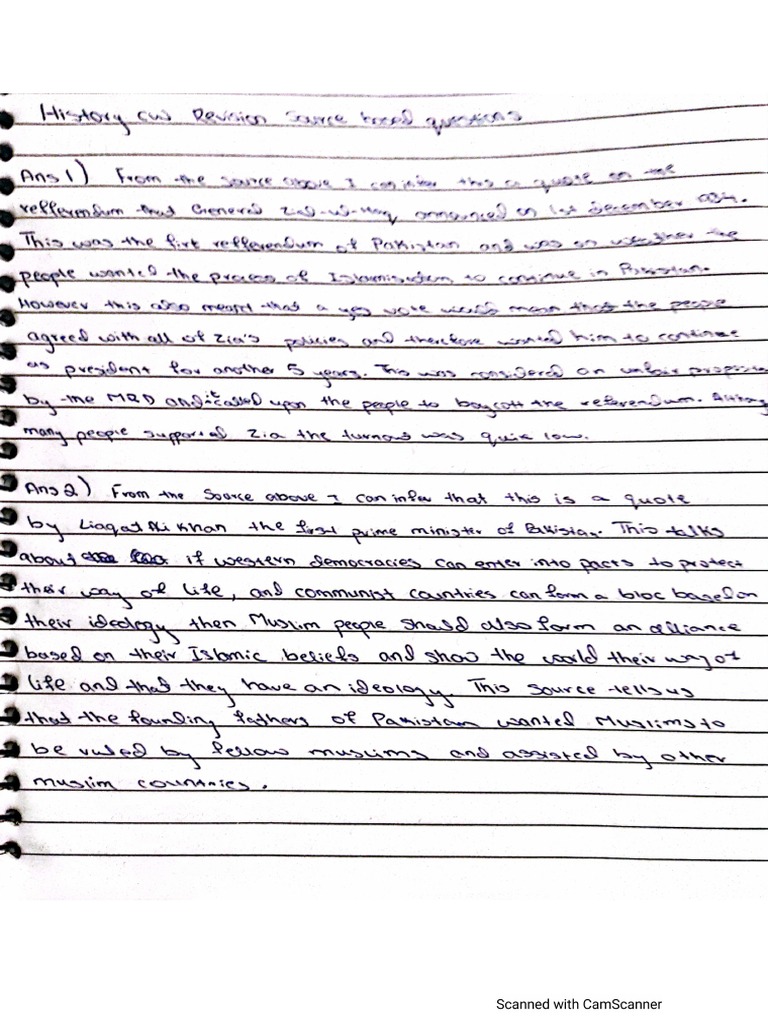 History cw Revision Source based questions
Ans 1) From the source above I can infer this a quote on the
refferendum that General Zia-ul-Haq announced on 1st December 1984.
This was the first refferendum of Pakistan and was on whether the
people wanted the process of Islamisation to continue in Pakistan.
However this also meant that a yes vote would mean that the people
agreed with all of Zia's policies and therefore wanted him to continue
as president for another 5 years. This was considered an unfair
by the MRD and it called upon the people to boycott the referendum.
many people supported Zia the turnout was quite low.
Ans 2) From the Source above I can infer that this is a quote
by Liaqat Ali Khan the first prime minister of Pakistan. This talks
about if western democracies can enter into pacts to protect
their way of life, and communist countries can form a bloc based on
their ideology then Muslim people should also form an alliance
based on their Islamic beliefs and show the world their way of
life and that they have an ideology. This source tells us
that the founding fathers of Pakistan wanted Muslims to
be ruled by fellow muslims and assisted by other
muslim countries.
Scanned with CamScanner